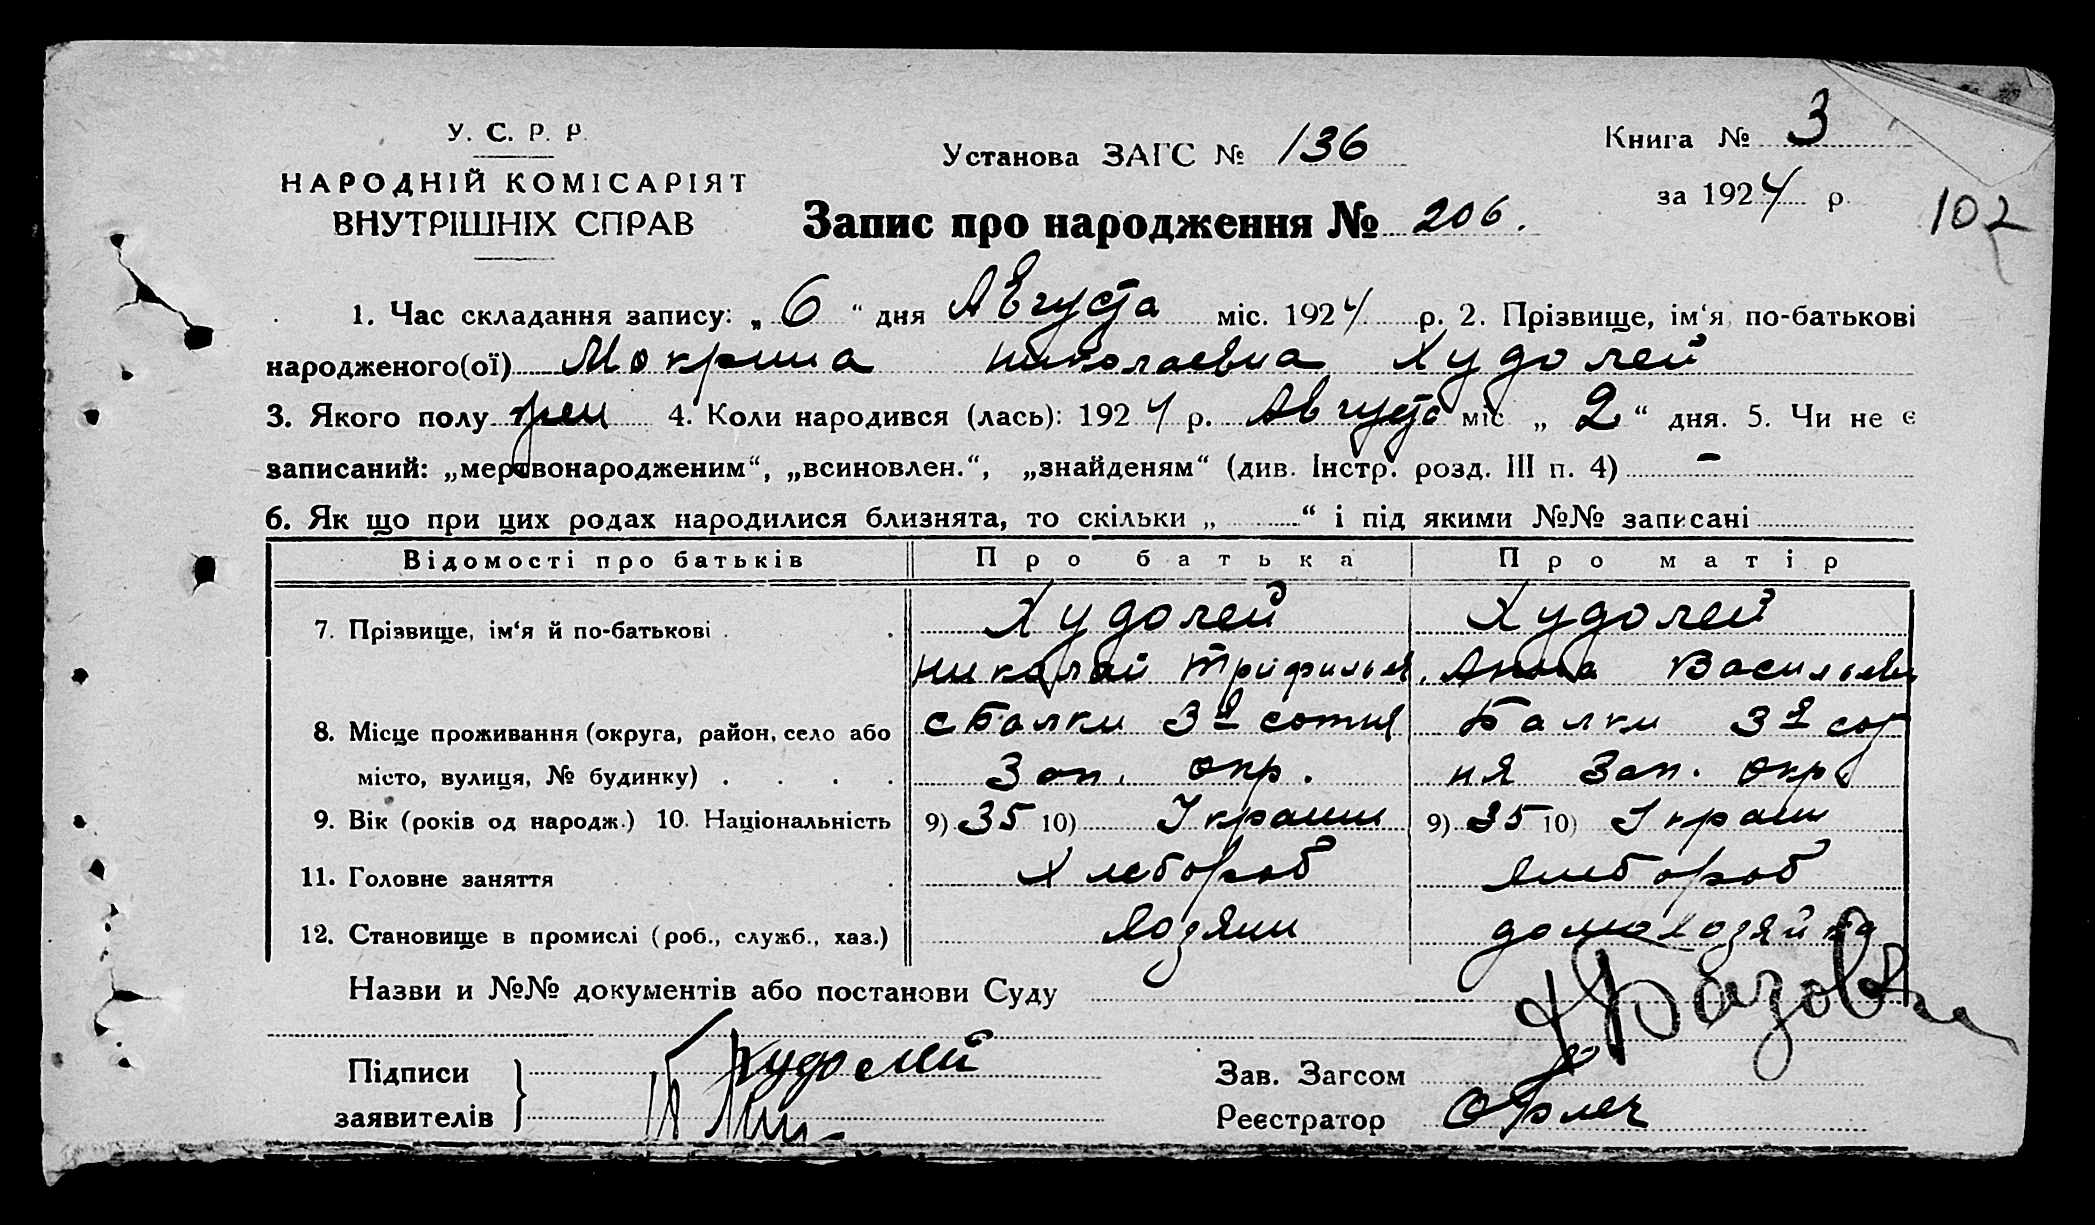 У. С. Р. Р.
НАРОДНІЙ КОМІСАРІЯТ
ВНУТРІШНІХ СПРАВ
Установа ЗАГС № 136
Книга № 3
за 1924 р.
102
Запис про народження № 206.
1. Час складання запису: „ 6 “ дня Августа міс. 1924 р. 2. Прізвище, ім‘я, по-батькові
народженого(ої) Мокрина Николаевна Худолей
3. Якого полу жен 4. Коли народився (лась): 1924 р. Августа міс „ 2 “ дня. 5. Чи не є
записаний: „мертвонародженим“, „всиновлен.“, „знайденям“ (див. Інстр. розд. III п. 4) –
6. Як що при цих родах народилися близнята, то скільки „ “ і під якими №№ записані
Відомості про батьків Про батька Про матір
7. Прізвище, ім‘я й по-батькові . . Худолей Худолей
Николай Анна
8. Місце проживання (округа, район, село або с Балки 3я сотня Балки 3я сот
місто, вулиця, № будинку) . . . . Зап. окр. ня Зап. окр
9. Вік (років од народж.) 10. Національність 9) 35 10) Украин 9) 35 10) Украин
11. Головне заняття . Хлебороб Хлебороб
12. Становище в промислі (роб., служб., хаз.) Хозяин домохозяйка
Назви и №№ документів або постанови Суду
Підписи Худолей
заявителів }
Зав. Загсом
Реєстратор